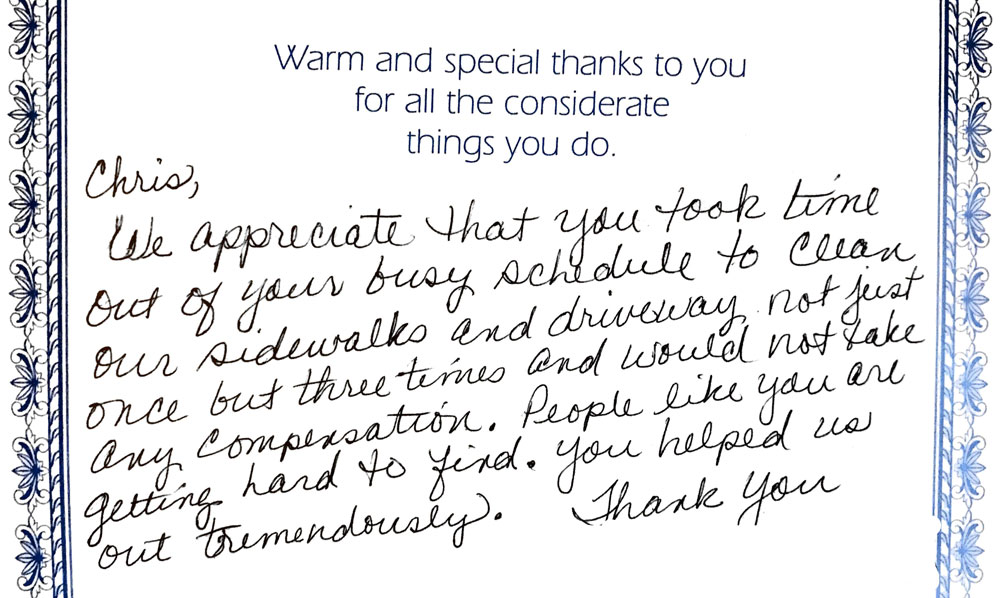 Warm and special thanks to you
for all the considerate
things you do.
Chris,
We appreciate that you took time
out of your busy schedule to clean
our sidewalks and driveway not just
once but three times and would not take
any compensation. People like you are
getting hard to find. You helped us
out tremendously. Thank You